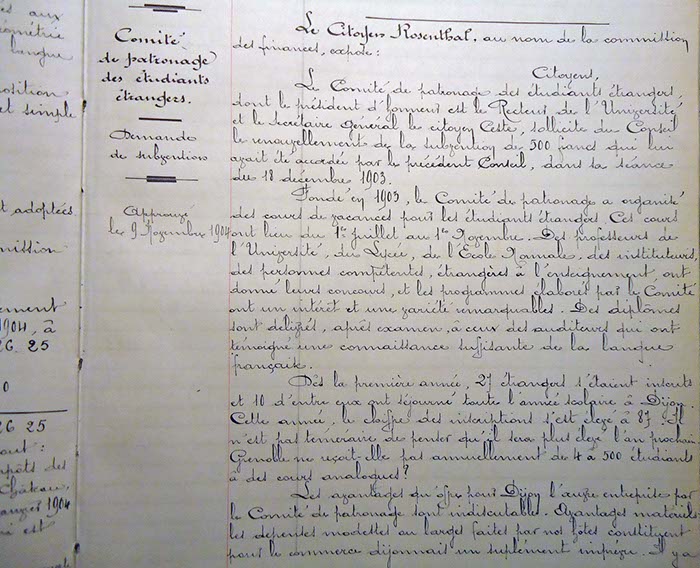 es aux
ométrie
langue
osition
et simple
t adoptées
mission
ement
1904, à
26. 25
0
26 25
aut :
mpôts des
Château
anvier 1904
ui est
Comité
de patronage
des étudiants
étrangers.
Demande
de subventions
Approuvé
le 9 Novembre 1904
Le Citoyen Rosenthal, au nom de la commission
des finances, expose :
Citoyens,
Le Comité de patronage des étudiants étrangers,
dont le président d'honneur est le Recteur de l'Université
et le secrétaire général le citoyen Ceste, sollicite du Conseil
le renouvellement de la subvention de 500 francs qui lui
avait été accordée par le précédent Conseil, dans sa séance
du 18 décembre 1903.
Fondé en 1903, le Comité de patronage a organisé
des cours de vacances pour les étudiants étrangers. Ces cours
ont lieu du 1er juillet au 1er Novembre. Des professeurs de
l'Université, du Lycée, de l'Ecole Normale, des instituteurs,
des personnes compétentes, étrangères à l'enseignement, ont
donné leurs concours, et les programmes élaborés par le Comité
ont un intérêt et une variété remarquables. Des diplômes
sont délivrés, après examen, à ceux des auditeurs qui ont
témoigné une connaissance suffisante de la langue
française.
Dès la première année, 27 étrangers s'étaient inscrits
et 10 d'entre eux ont séjourné toute l'année scolaire à Dijon
Cette année, le chiffre des inscriptions s'est élevé à 87. Il
n'est pas temeraire de penser qu'il sera plus élevé l'an prochain
Grenoble ne reçoit-elle pas annuellement de 4 à 500 étudiants
à des cours analogues ?
Les avantages qu'offre pour Dijon l'œuvre entreprise par
le Comité de patronage sont indiscutables. Avantages matériels
les dépenses modestes ou larges faites par nos hôtes constituent
pour le commerce dijonnais un suplément imprévu. Il y a